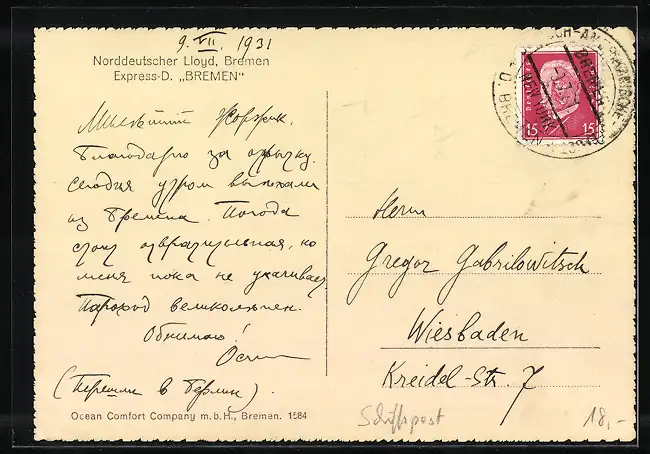 9. VII. 1931
Norddeutscher Lloyd, Bremen
Express-D. „BREMEN"
Милейший Жоржик.
Благодарю за
сегодня утром выехали
из Бремена. Погода
стоит отвратительная, но
меня пока не укачивает
Пароход великолепен.
Обнимаю!
(Перешли в Берлин).
Ocean Comfort Company m.b.H., Bremen. 1584
15 15
BREMEN
NEW YORK
Herrn
Gregor Gabrilowitsch
Wiesbaden
Kreidel-Str. 7
Schiffspost
18,-